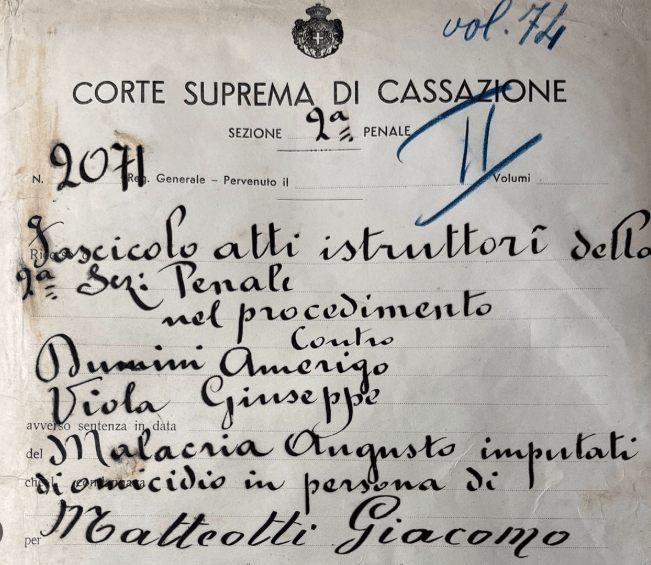 vol. 74
CORTE SUPREMA DI CASSAZIONE
SEZIONE 2ª PENALE
II
N. 2071 Reg. Generale – Pervenuto il Volumi
Fascicolo atti istruttorî della
2ª Sez: Penale
nel procedimento
Contro
Dumini Amerigo
Viola Giuseppe
avverso sentenza in data
del Malacria Augusto imputati
di omicidio in persona di
per Matteotti Giacomo